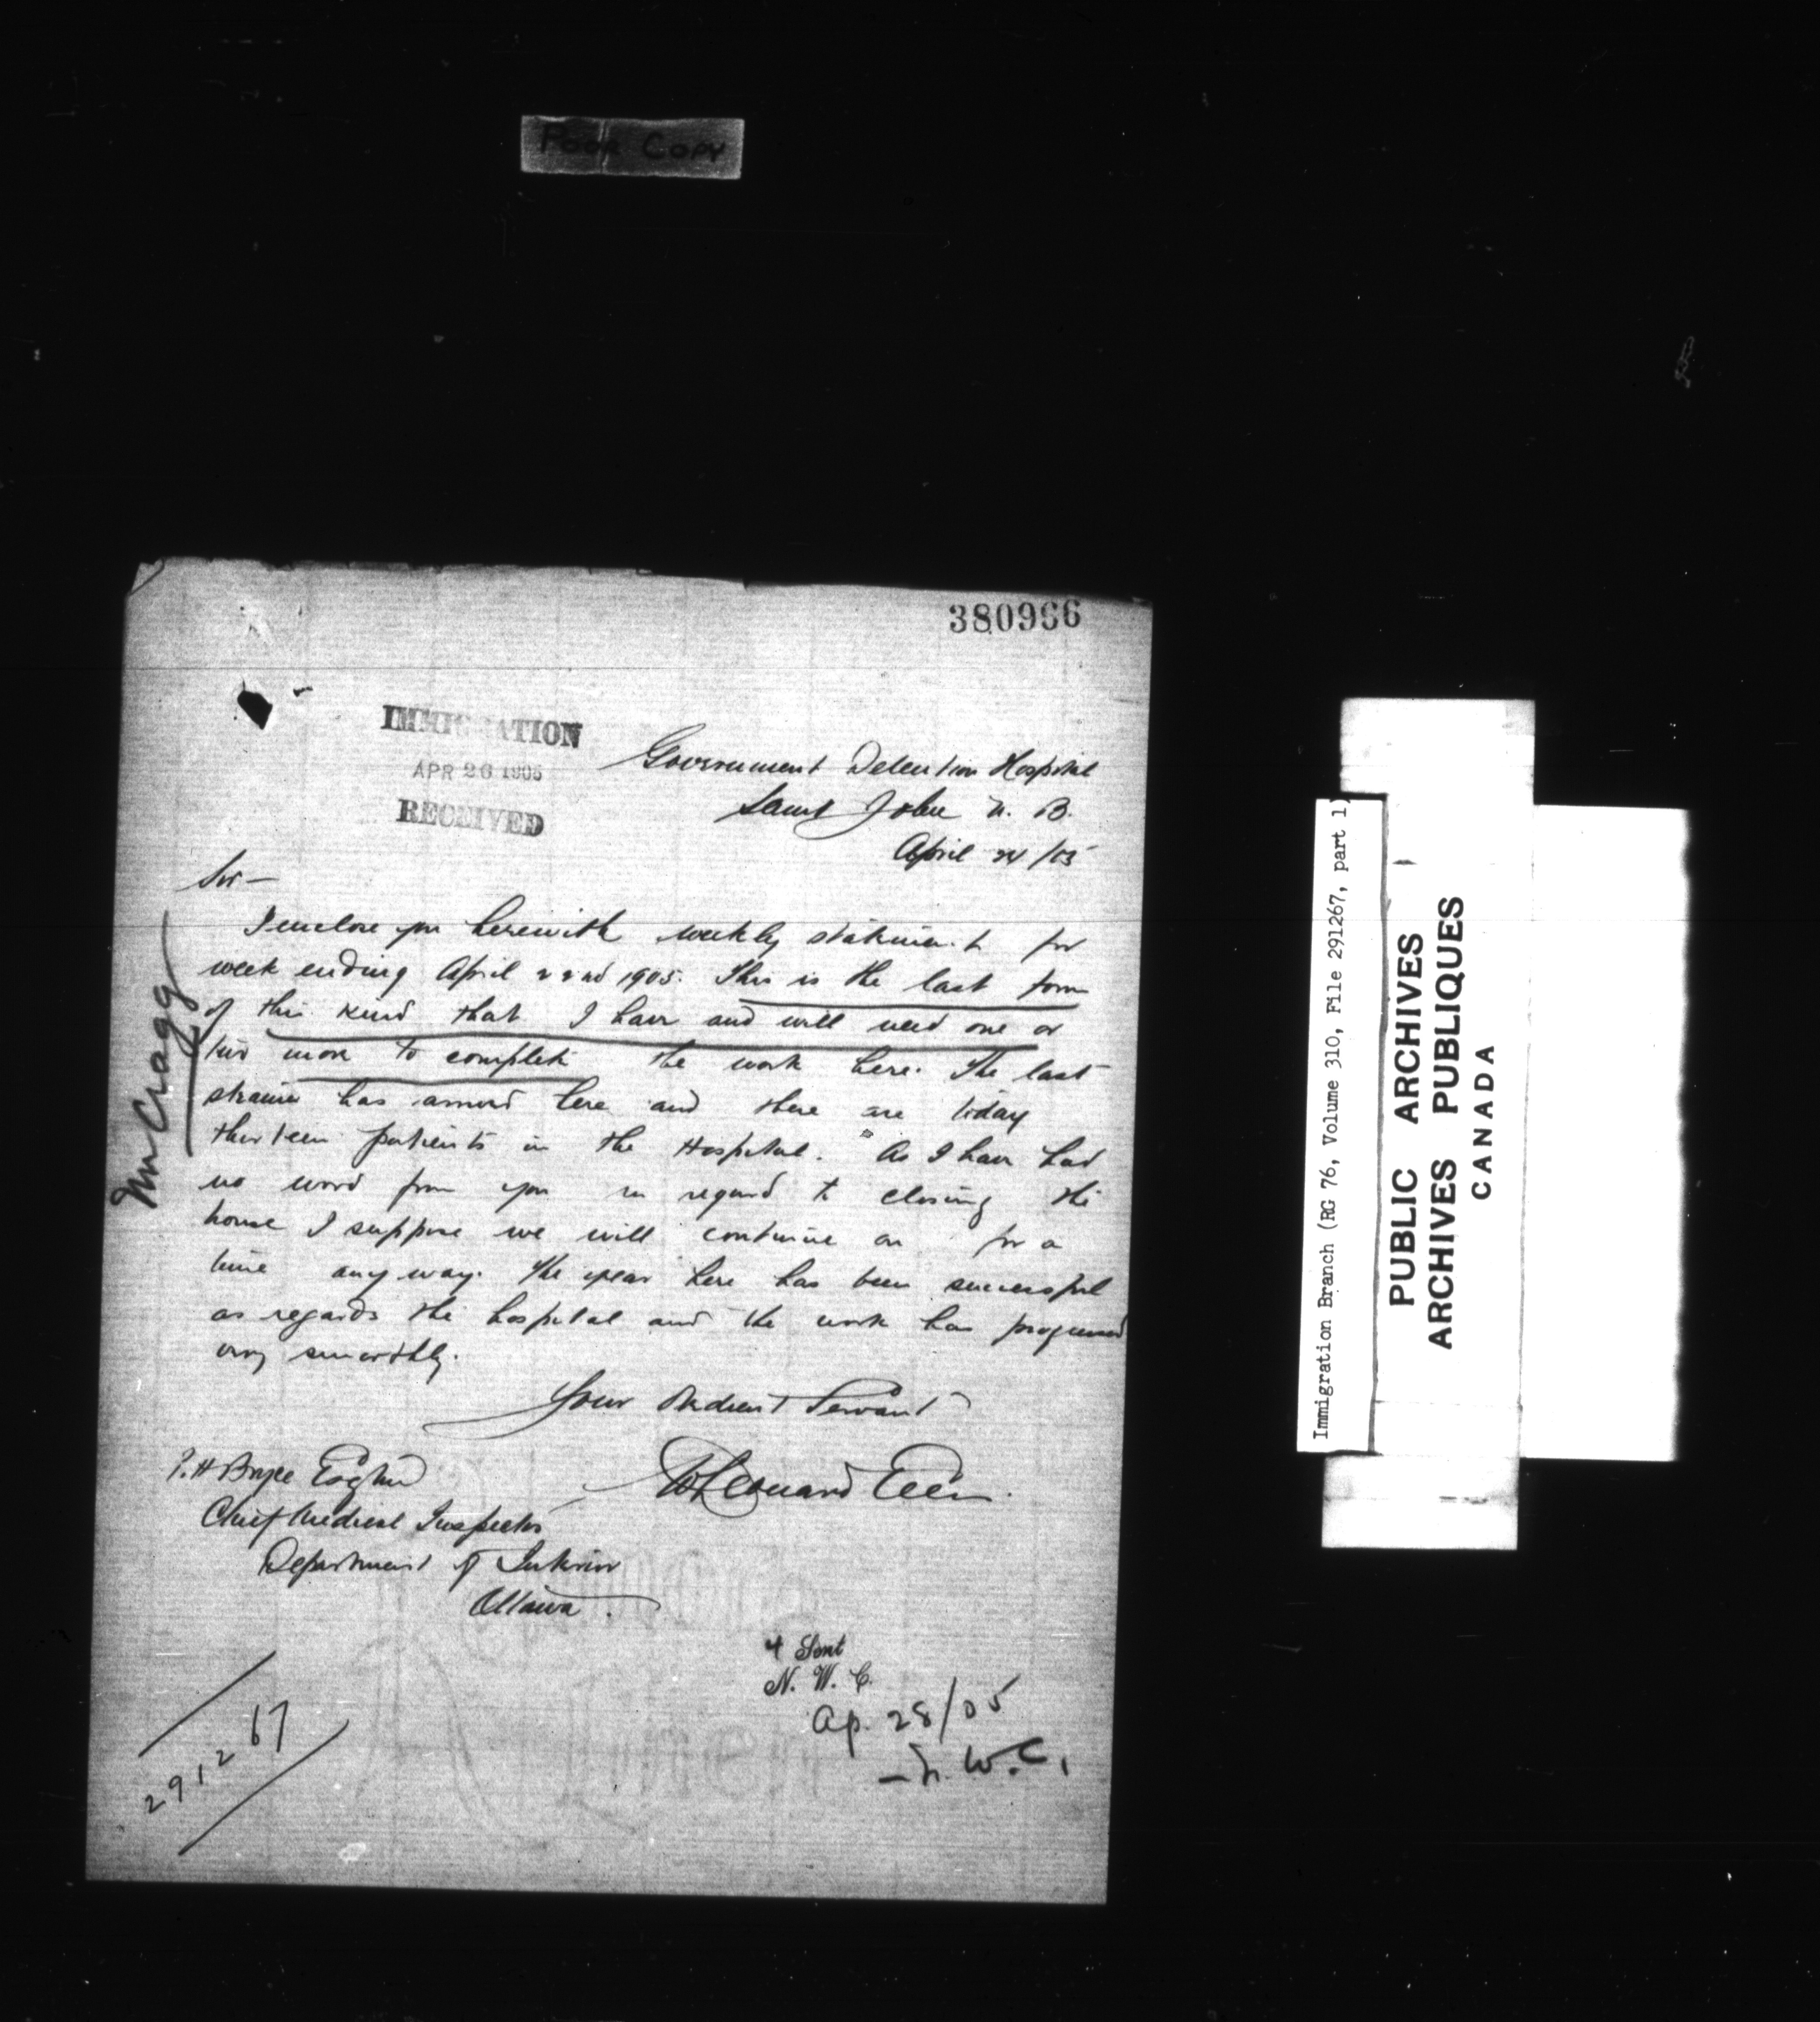 Poor Copy
380966
IMMIGRATION
APR 26 1905
RECEIVED
Government Detention Hospital
Saint John N. B.
April 24/05
Sir —
I enclose you herewith weekly statement for
week ending April 22nd 1905. This is the last form
of this kind that I have and will need one or
two more to complete the work here. The last
steamer has arrived here and there are today
thirteen patients in the Hospital. As I have had
no word from you in regard to closing the
house I suppose we will continue on for a
time any way. The year here has been successful
as regards the hospital and the work has progressed
very smoothly.
Your Obedient Servant
W Leonard Ellis
P. H Bryce Esq
Chief Medical Inspector
Department of Interior
Ottawa.
Mr Cragg
4 Sent
N. W. C.
Ap. 28/05
— N. W. C.
291267
Immigration Branch (RG 76, Volume 310, File 291267, part 1)
PUBLIC ARCHIVES
ARCHIVES PUBLIQUES
CANADA